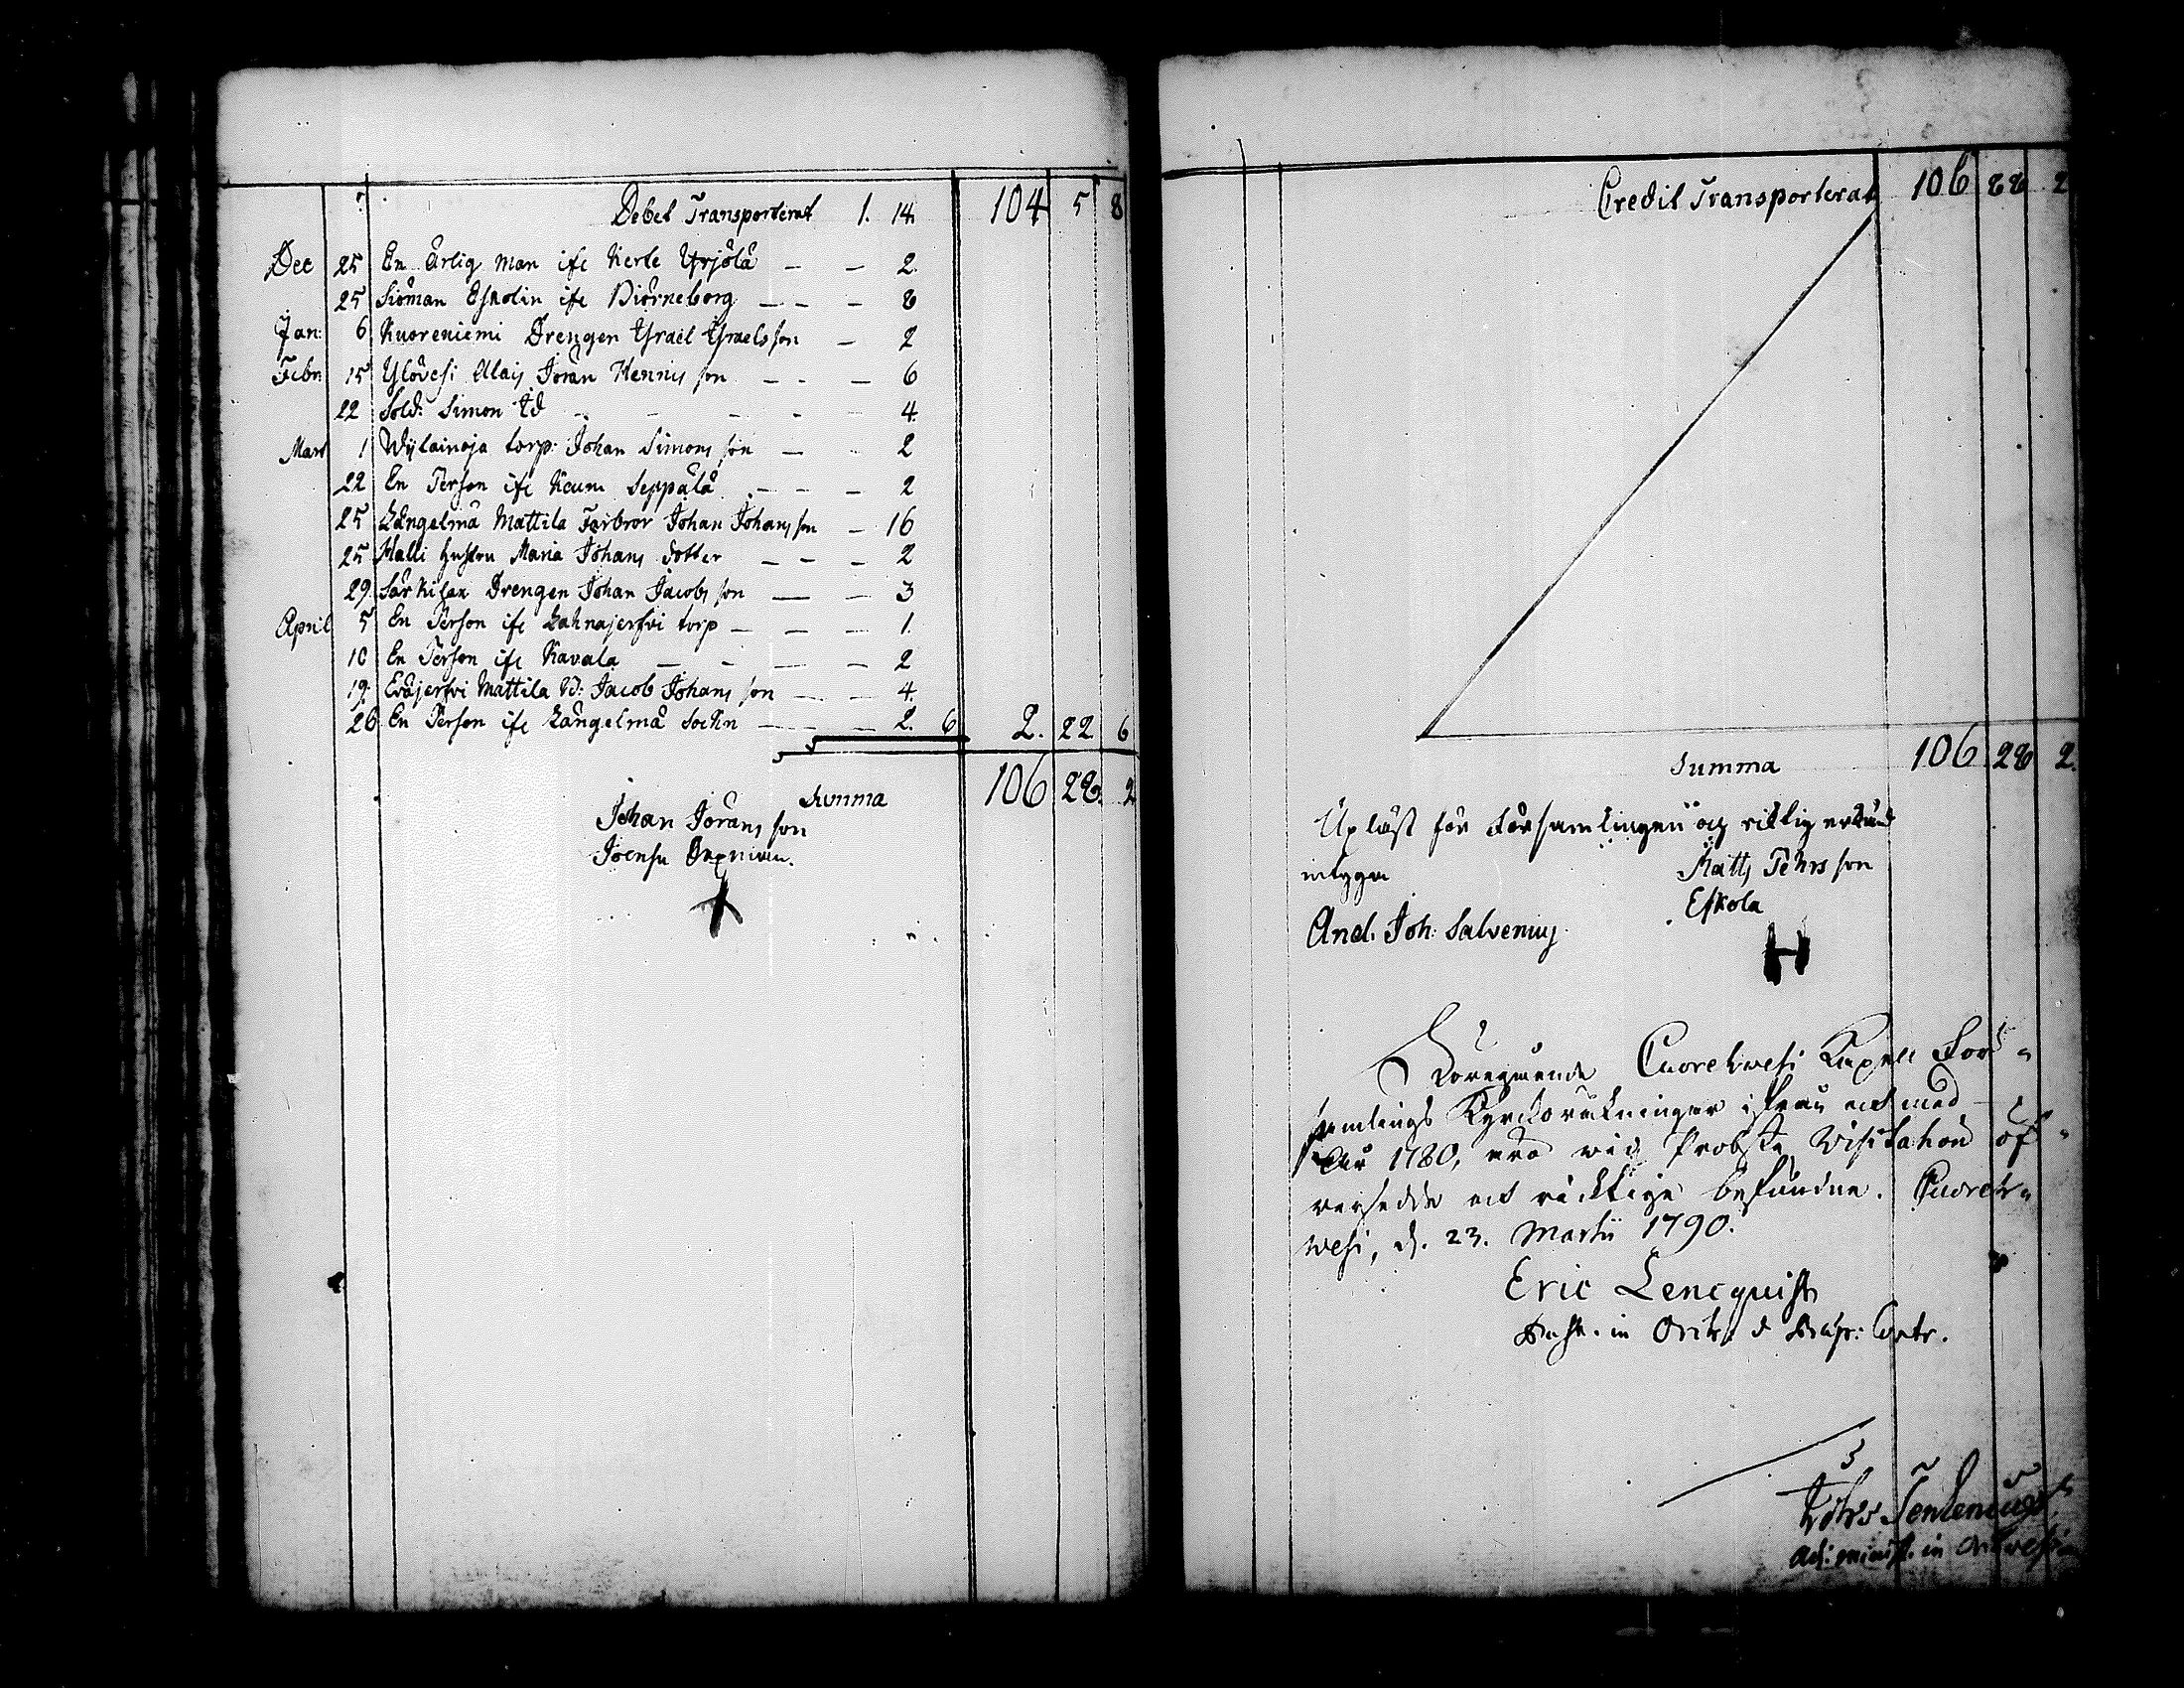 Debet Transporterat 1. 14. 104 5 8
Dec 25 En ärlig man ifr Kerte Yrjölä — — 2.
25 Sióman Eskolin ifr Biörneborg — — — 8
Jan: 6 Kuoreniemi Drengen Israel Israels son — 2
Febr: 15 Ylöwesi Jöran Hennis son — — — 6
22 Sold: Simon Id — — — 4.
Mart 1 torp: Johan Simons son — — 2
22 En Person ifr Seppälä — — — 2
25 Längelmä Mattila Farbror Johan Johans son — 16
25 Halli hustru Maria Johans dotter — — — 2
29. Särkilax Drengen Johan Jacobs son — — 3
April 5 En Person ifr Lahnajerfvi torp — — — 1.
10 En Person ifr Kavala — — — — 2
19. Eväjerfvi Mattila Jacob Johans son — — 4.
26 En Person ifr Längelmä Sockn — — 2. 6 2. 22 6
Summa 106 28. 2
Johan Jörans son
Joensu
Credit Transporterat 106 28 2
Summa 106 28 2.
Upläst för Församlingen och riktig erkänd
intygar
Matts Pehrs son
Eskola
And. Joh: Salvenius
H
Föregående Cuorehwesi Kapell För-
samlings Kyrckoräkningar ifrån och med
År 1780, äro wid Probste Visitation öf-
wersedde och riktige befundne. Cuoreh-
wesi, d. 23. Martii 1790.
Eric Lencquist
Past. in Orih: & Præp: Contr.